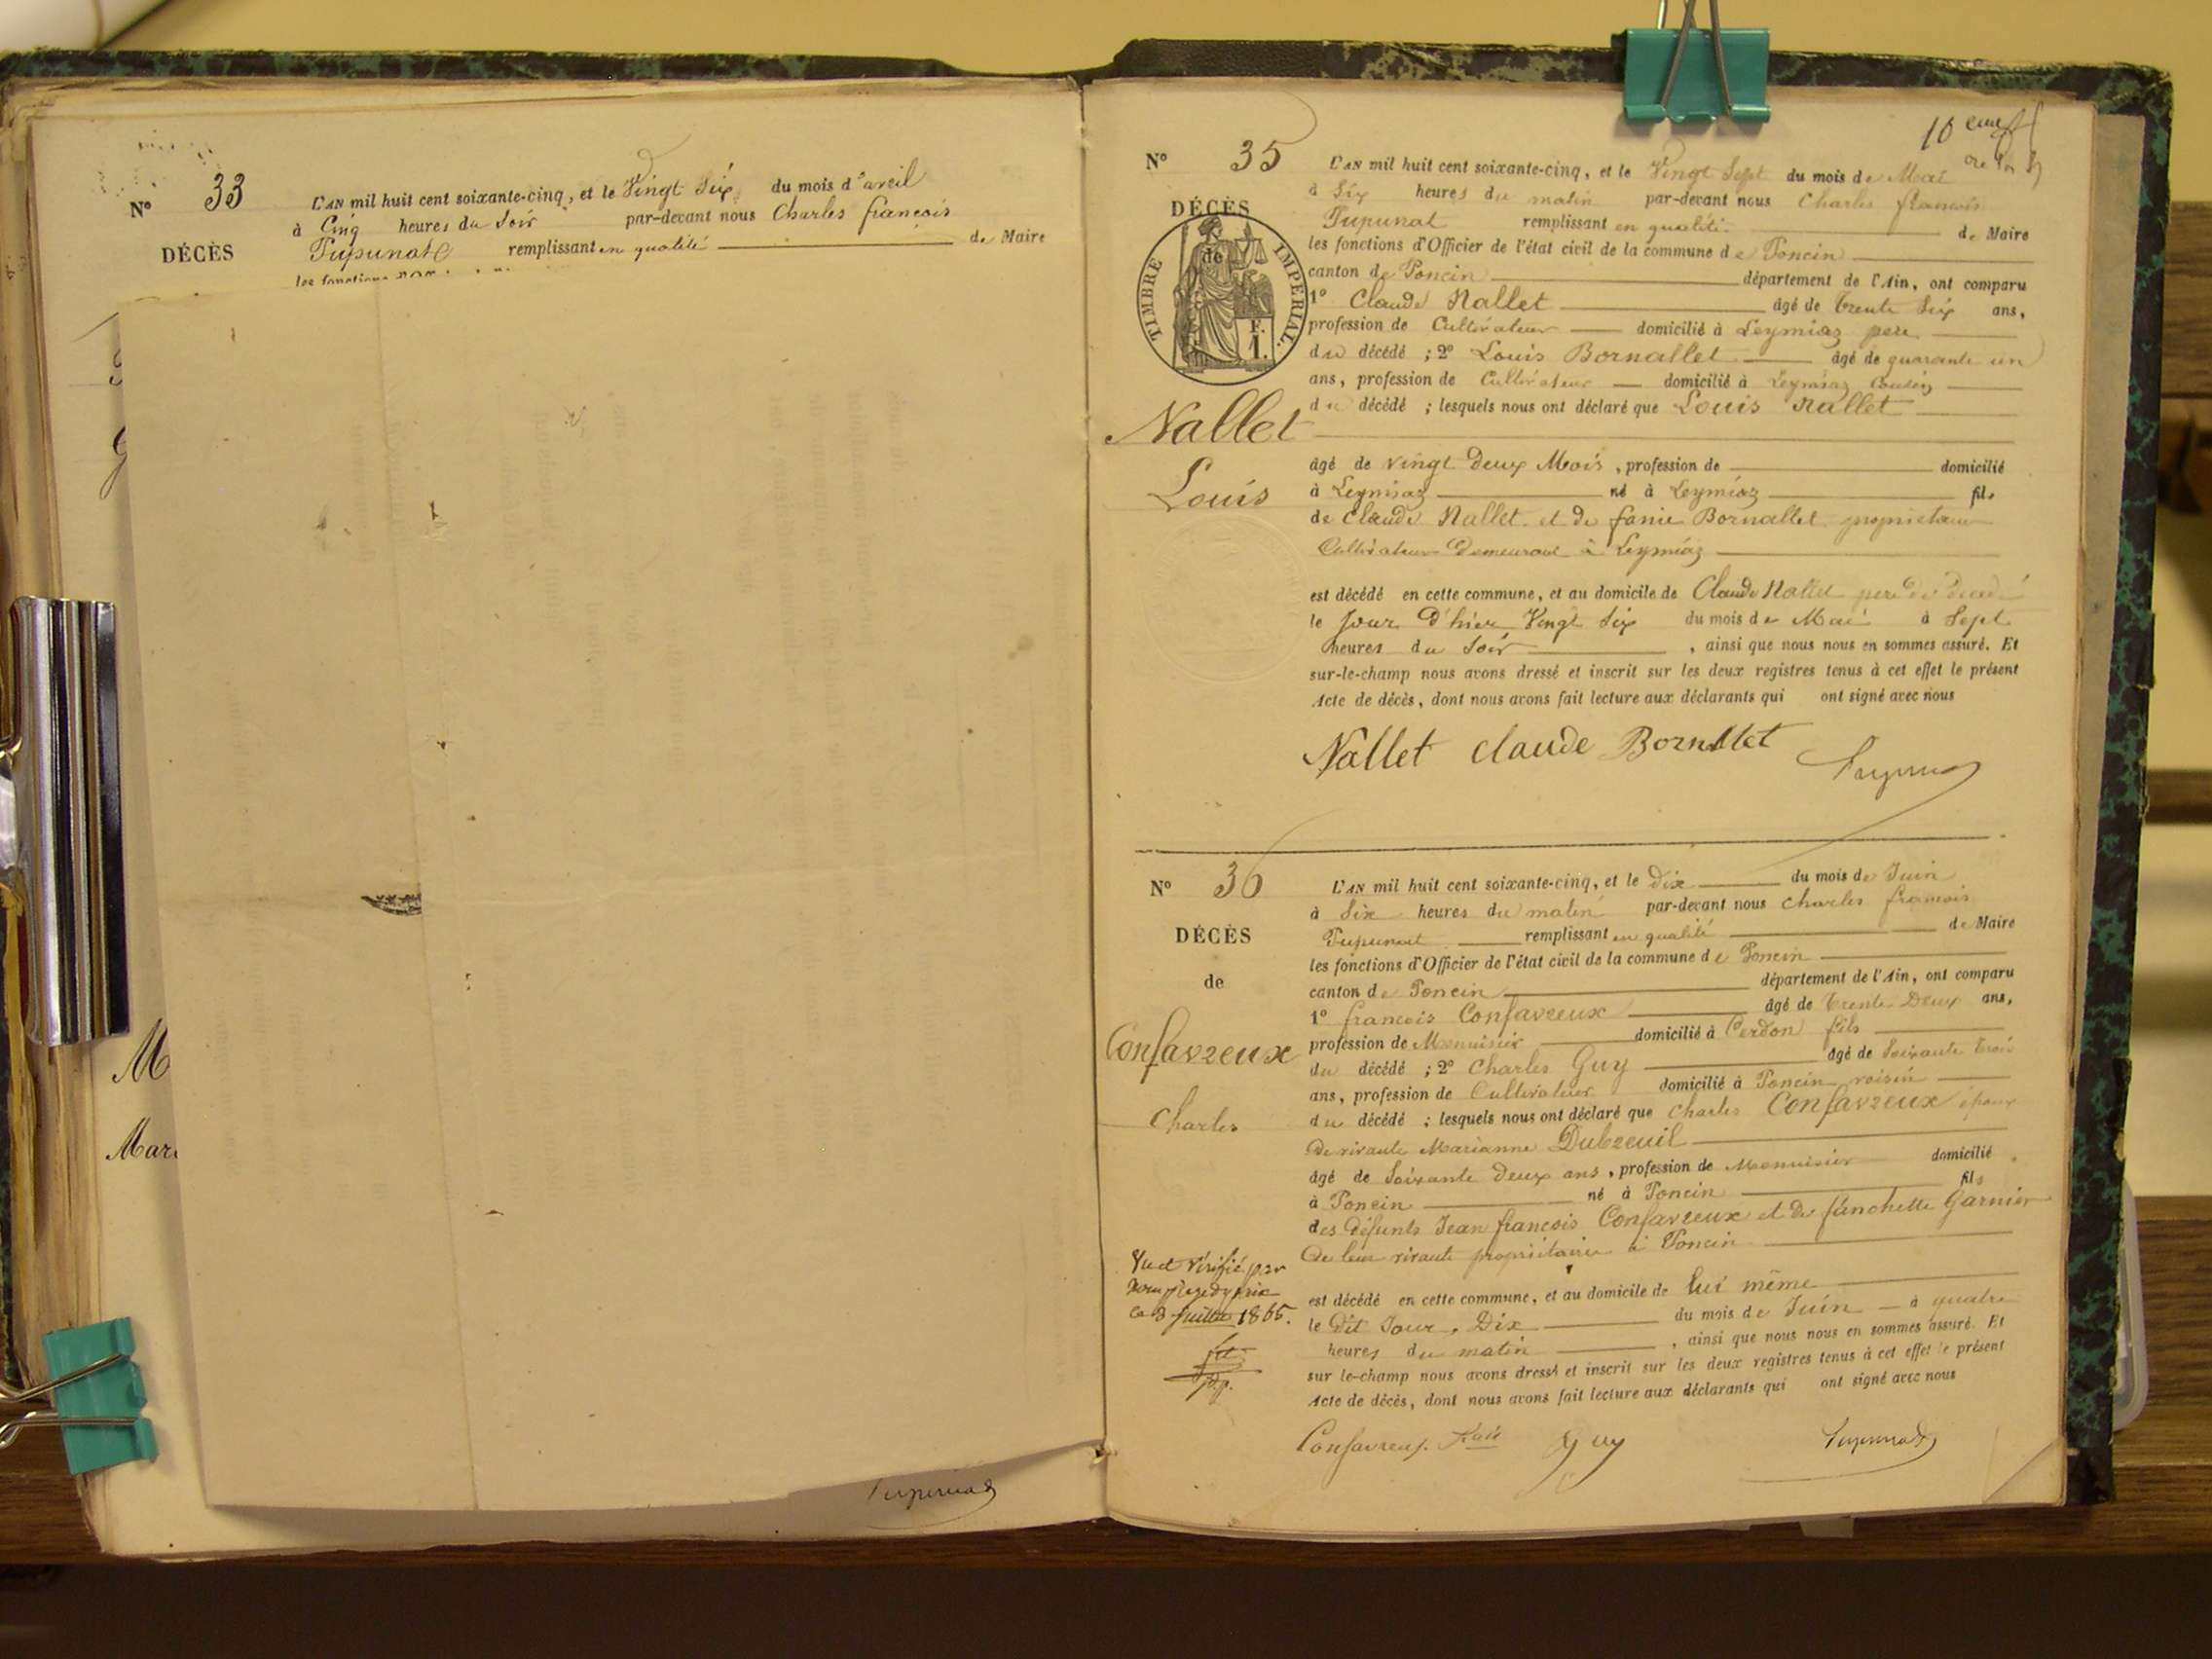 N° 33
DÉCÈS
L'AN mil huit cent soixante-cinq, et le Vingt Six du mois d'avril
à Cinq heures du Soir par-devant nous Charles françois
Pupunat remplissant en qualité de Maire
M
Mar
10
N° 35
DÉCÈS
de
TIMBRE IMPÉRIAL.
F.
1.
Nallet
Louis
L'AN mil huit cent soixante-cinq, et le Vingt Sept du mois de Mai
à Six heures du matin par-devant nous Charles francois
Pupunat remplissant en qualité de Maire
les fonctions d'Officier de l'état civil de la commune de Poncin
canton de Poncin département de l'Ain, ont comparu
1° Claude Nallet âgé de trente Six ans,
profession de Cultivateur domicilié à Leymiaz pere
du décédé ; 2° Louis Bornallet âgé de quarante un
ans, profession de Cultivateur domicilié à Leymiaz Cousin
du décédé ; lesquels nous ont déclaré que Louis Nallet
âgé de vingt Deux Mois, profession de domicilié
à Leymiaz né à Leymiaz fils
de Claude Nallet et de fanie Bornallet propriétaire
Cultivateur Demeurant à Leymiaz
est décédé en cette commune, et au domicile de Claude Nallet pere du décédé
le Jour D'hier Vingt Six du mois de Mai à Sept
heures du Soir , ainsi que nous nous en sommes assuré. Et
sur-le-champ nous avons dressé et inscrit sur les deux registres tenus à cet effet le présent
Acte de décès, dont nous avons fait lecture aux déclarants qui ont signé avec nous
Nallet Claude Bornallet
N° 36
DÉCÈS
de
Confavreux
Charles
L'AN mil huit cent soixante-cinq, et le Dix du mois de Juin
à Six heures du matin par-devant nous Charles francois
Pupunat remplissant en qualité de Maire
les fonctions d'Officier de l'état civil de la commune de Poncin
canton de Poncin département de l'Ain, ont comparu
1° francois Confavreux âgé de trente Deux ans,
profession de Menuisier domicilié à Cerdon fils
du décédé ; 2° Charles Guy âgé de Soixante trois
ans, profession de Cultivateur domicilié à Poncin voisin
du décédé ; lesquels nous ont déclaré que Charles Confavreux époux
De vivante Marianne Dubreuil
âgé de Soixante Deux ans, profession de Menuisier domicilié
à Poncin né à Poncin fils
des Défunts Jean francois Confavreux et de fanchette Garnier
De leur vivants propriétaires à Poncin
est décédé en cette commune, et au domicile de lui même
le Dit Jour, Dix du mois de Juin à quatre
heures du matin , ainsi que nous nous en sommes assuré. Et
sur le-champ nous avons dressé et inscrit sur les deux registres tenus à cet effet le présent
Acte de décès, dont nous avons fait lecture aux déclarants qui ont signé avec nous
Vu et vérifié par
nous juge de paix
Ce 3 Juillet 1865.
Confavreux Guy Pupunat
Pupunat